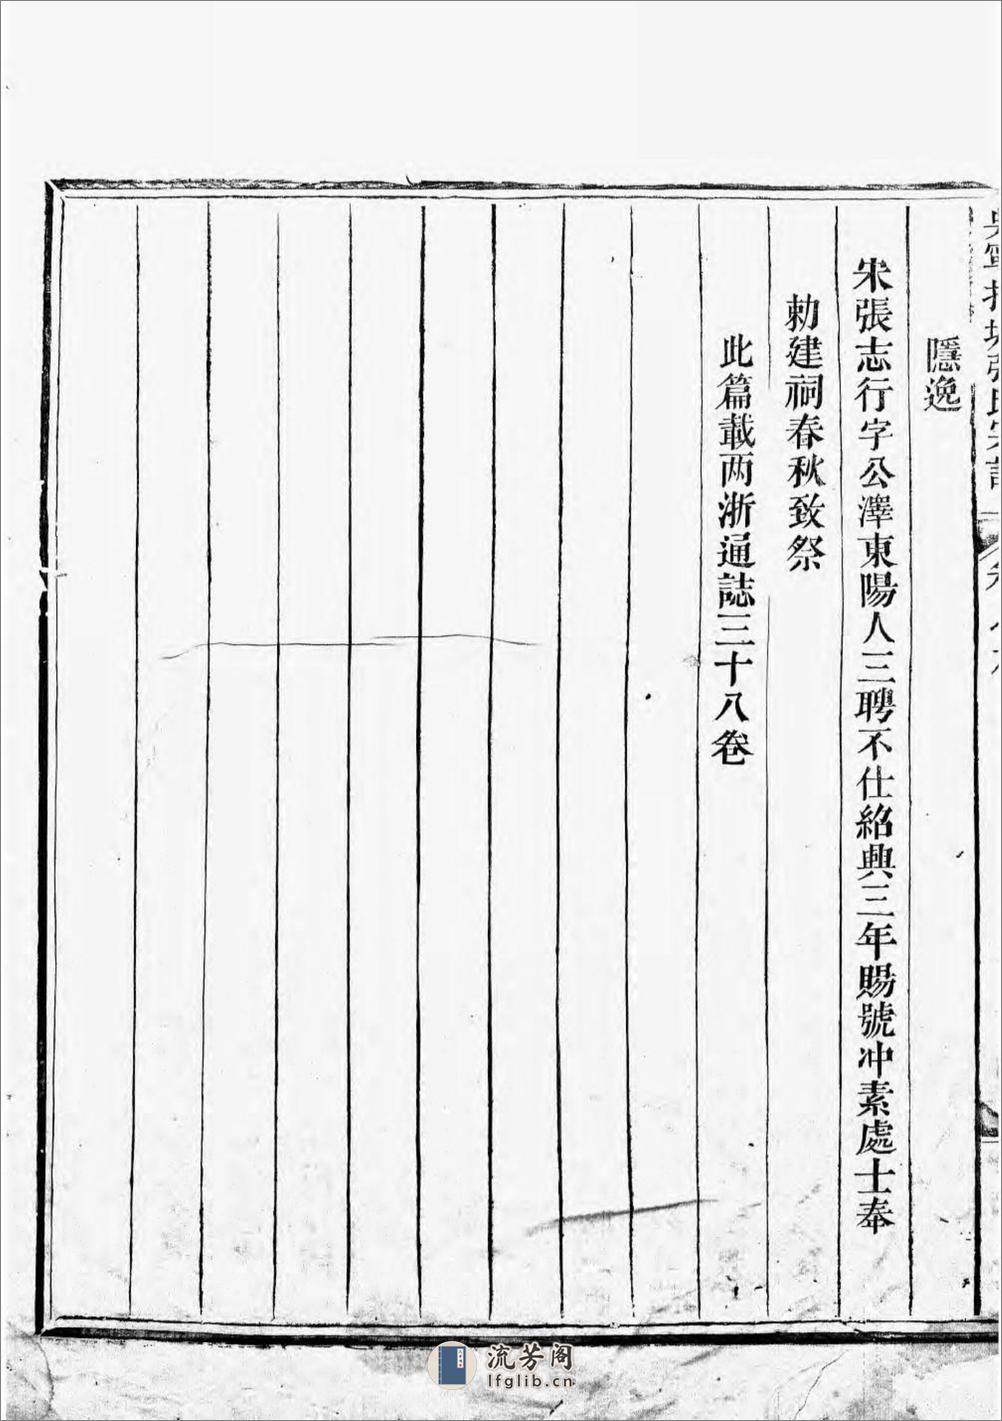 隱逸
宋張志行字公澤東陽人三聘不仕紹興三年賜號冲素處士奉
勅建祠春秋致祭
此篇載两浙通誌三十八卷
流芳阁
lfglib.cn